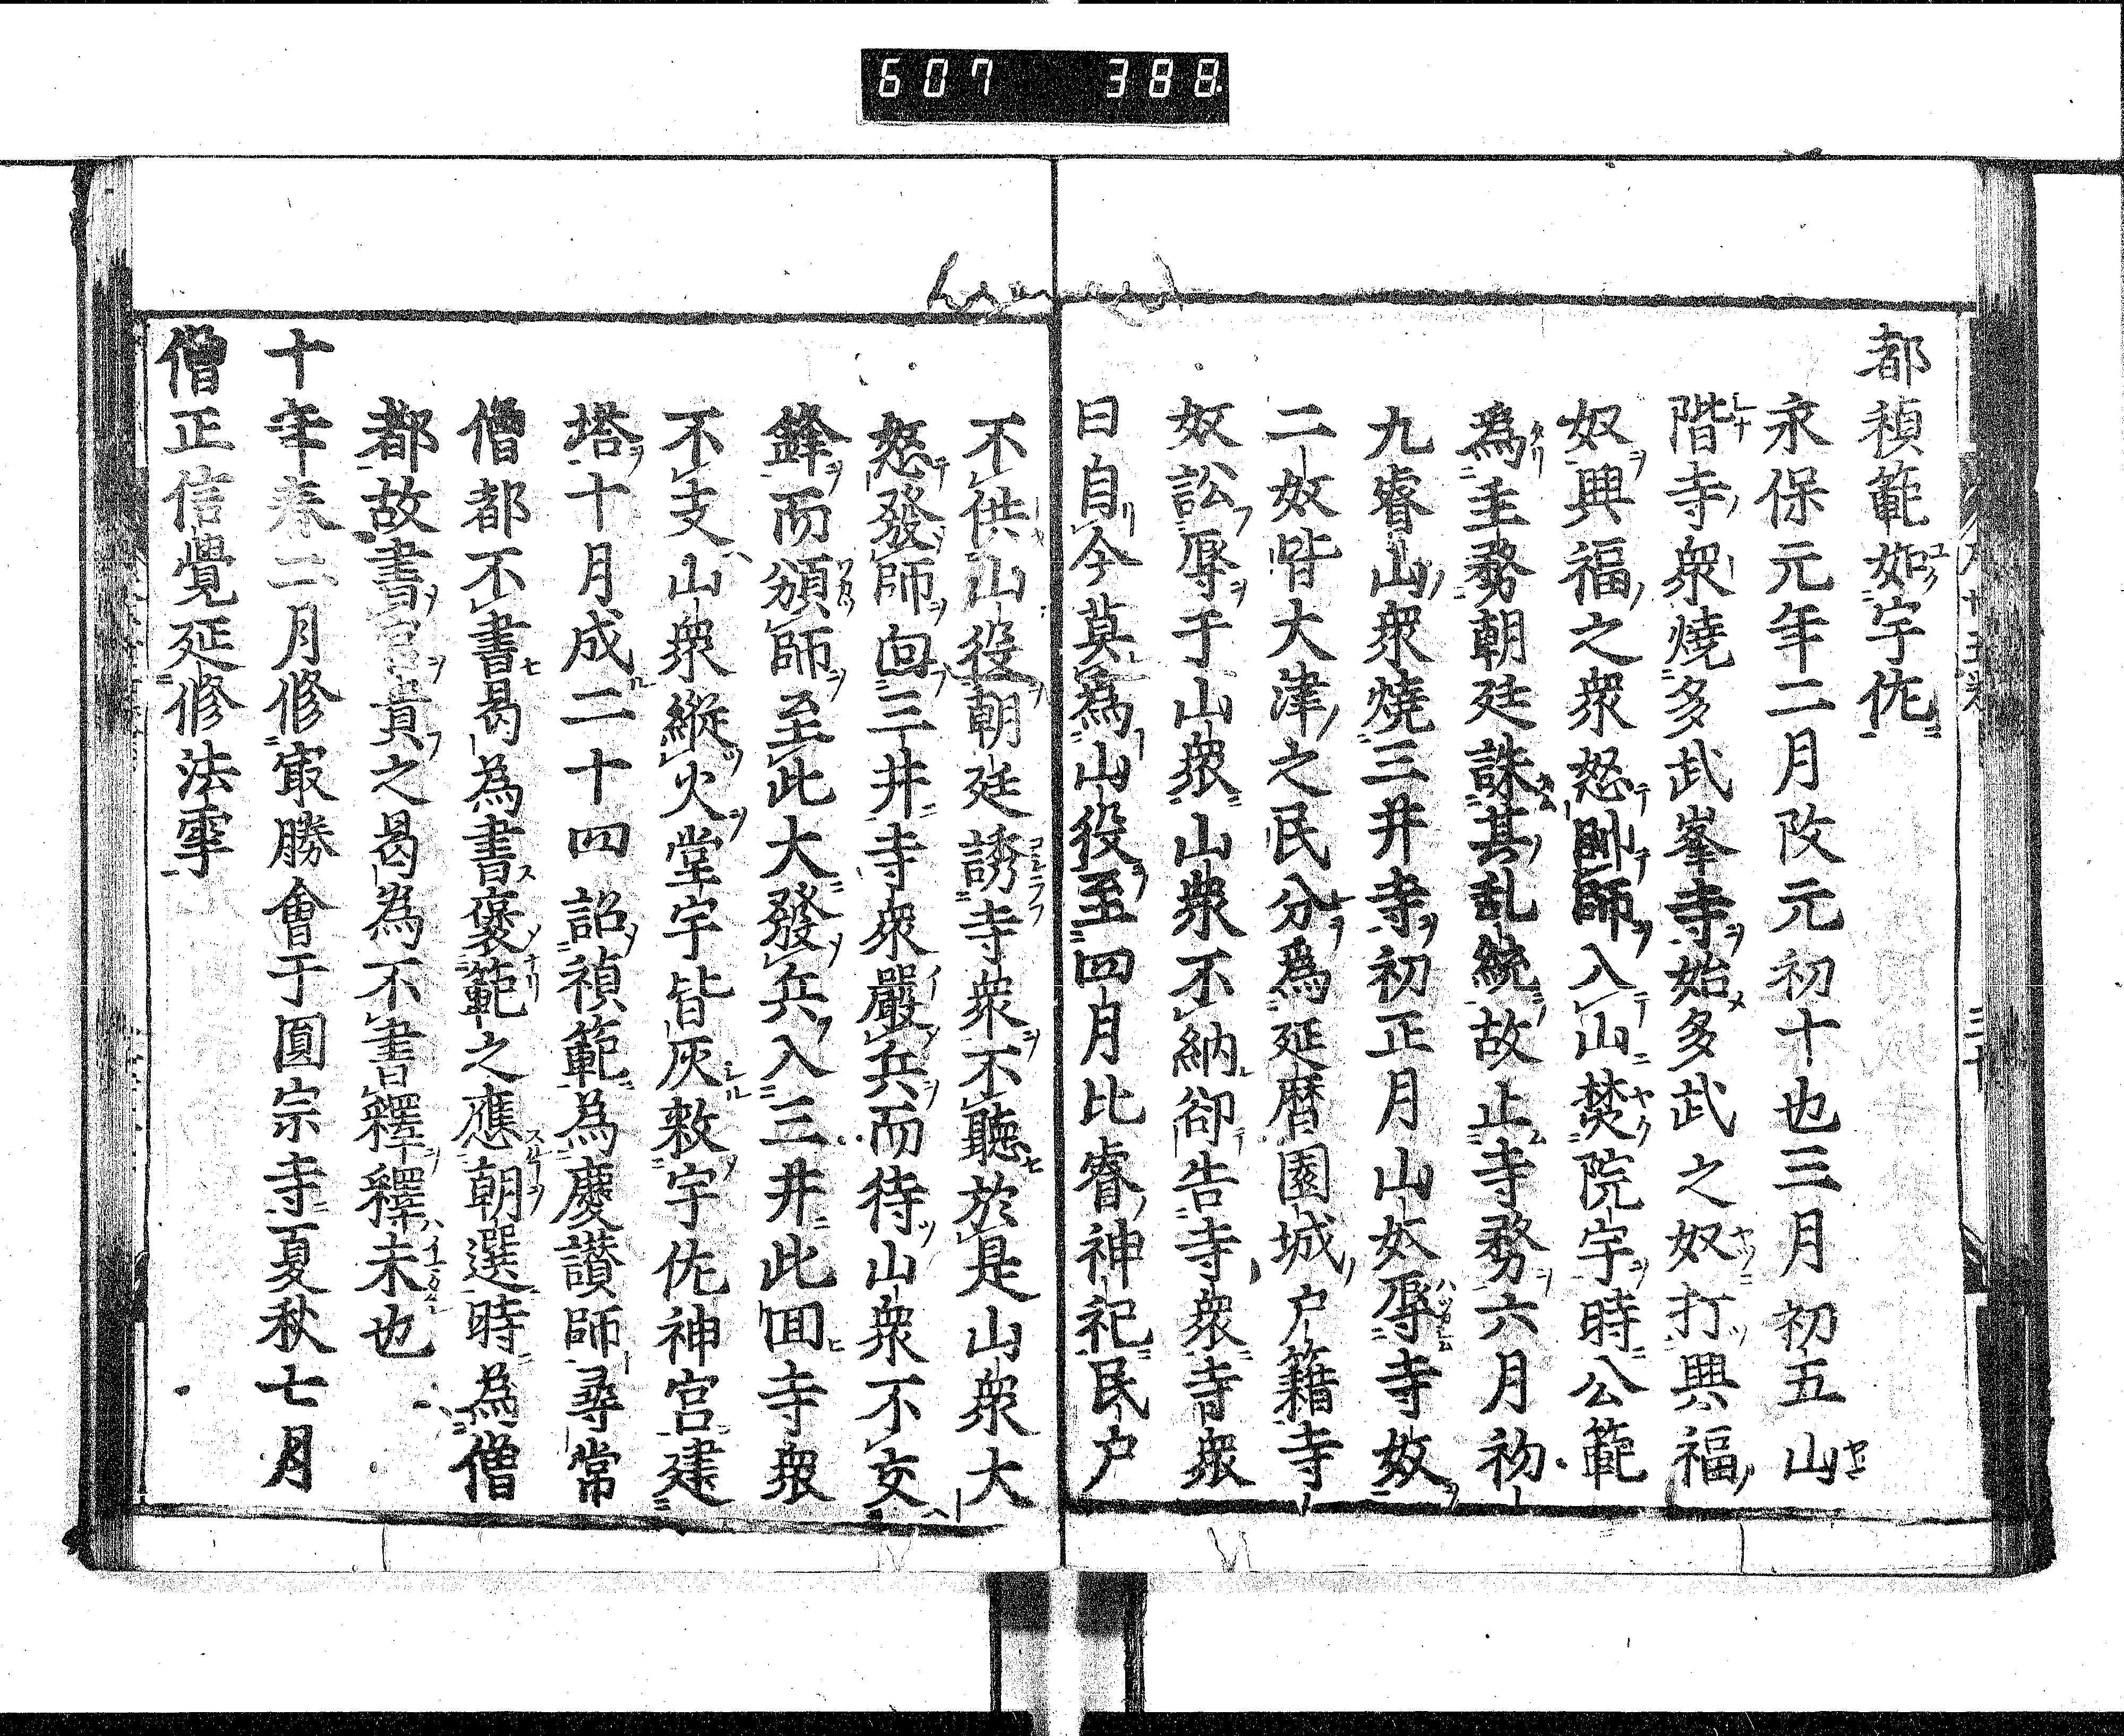 607 388
都禎範如宇佐
永保元年二月改元初十也三月初五山
階寺衆燒多武峯寺始多武之奴打興福
奴興福之衆怒帥師入山焚院宇時公範
爲主務朝廷誅其乱統故止寺務六月初
九睿山衆燒三井寺初正月山奴辱寺奴
二奴皆大津之民分爲延暦園城户籍寺
奴訟辱于山衆山衆不納卻告寺衆寺衆
曰自今莫爲山役至四月比睿神祀民户
不供山役朝廷誘寺衆不聽於是山衆大
怒發師向三井寺衆嚴兵而待山衆不交
鋒而頒師至此大發兵入三井此回寺衆
不支山衆縱火堂宇皆灰敕宇佐神宮建
塔十月成二十四詔禎範為慶讃師尋常
僧都不書曷為書褒範之應朝選時為僧
都故書官貴之曷為不書釋釋未也
十年春二月修冣勝會于圓宗寺夏秋七月
僧正信覺延修法雩
二十